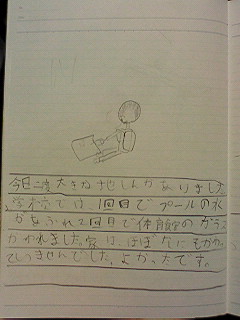 今日二度大きな地しんがありました
学校では1回目でプールの水
があふれ2回目で体育館のガラス
がわれました。家は、ほぼなにもかわっ
ていませんでした。よかったです。